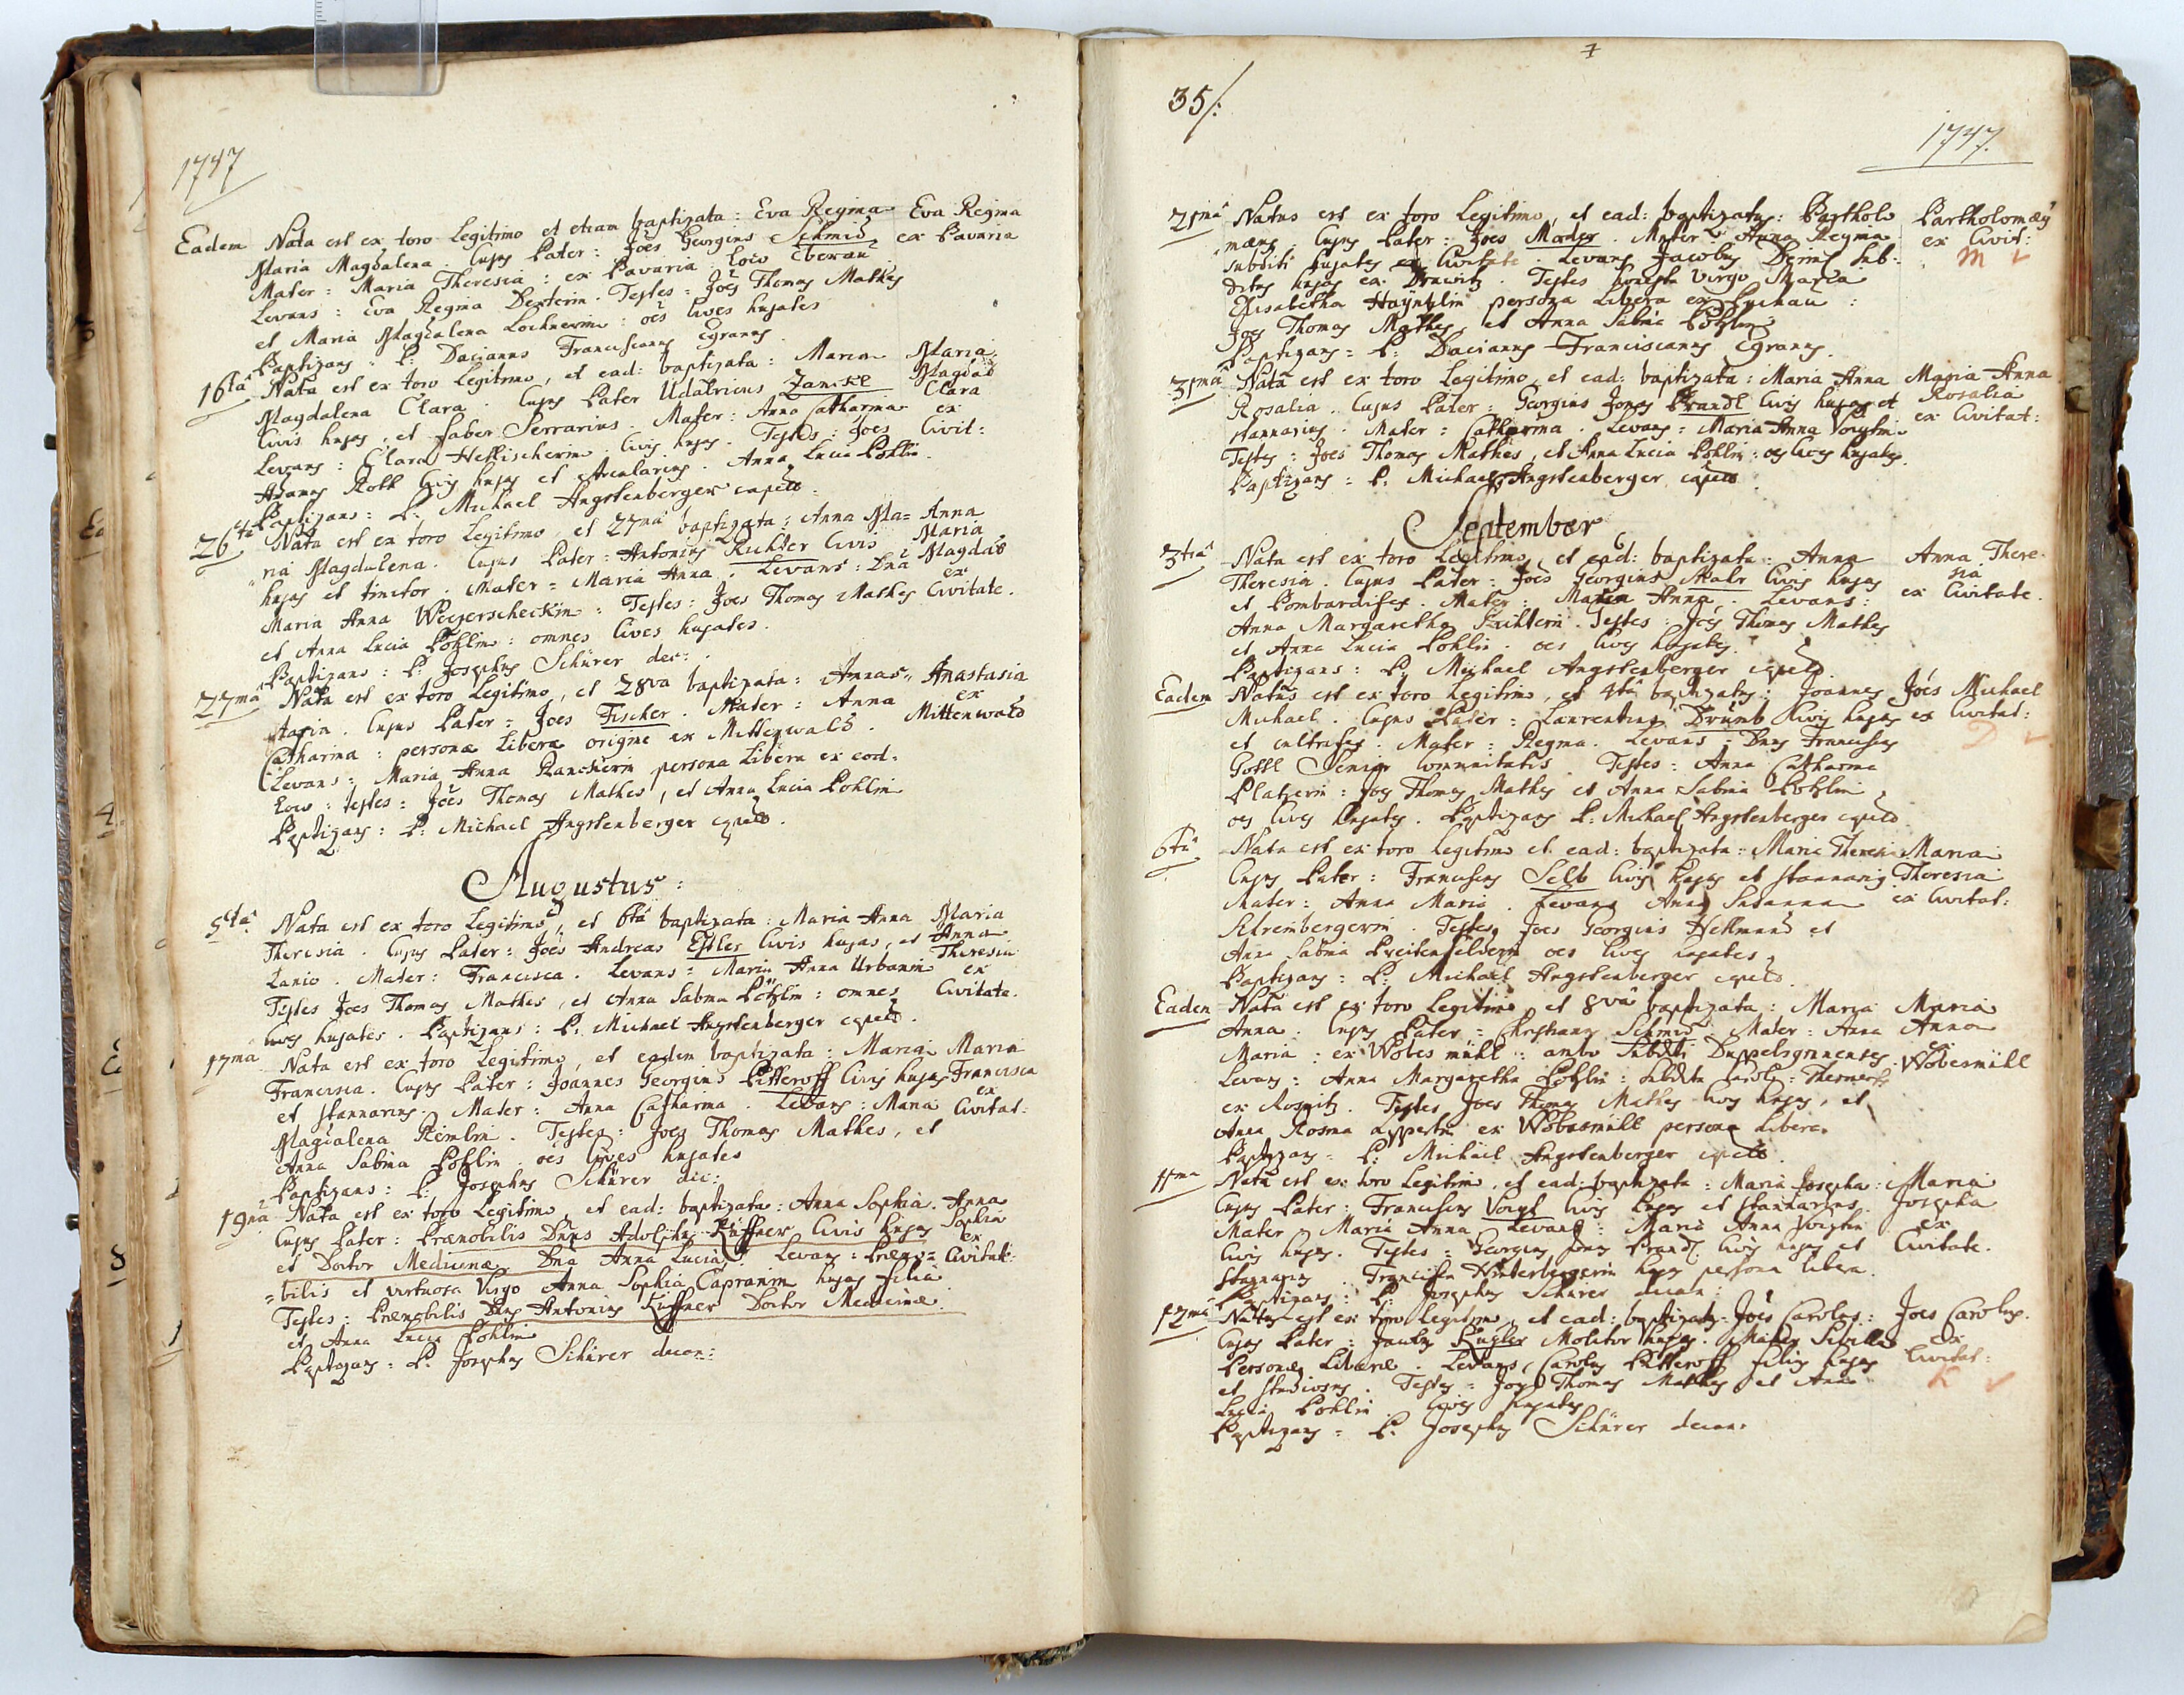 1747
Eadem Nata est ex toro Legitimo et etiam baptizata: Eva Regina Eva Regina
Maria Magdalena. Cujus Pater: Joës Georgius Schmid ex Bavaria
Mater: Maria Theresia: ex Bavaria loco
Levans: Eva Regina Dexterin. Testes: Joës Thomas Mathes
et Maria Magdalena Lochnerin: oës Cives hujates
Baptizans: P: Dacianus Franciscanus Egranus
16ta Nata est ex toro Legitimo, et ead: baptizata: Maria Maria
Magdalena Clara. Cujus Pater Udalricus Zanickl Magdal
Civis hujas, et faber Serrarius. Mater: Anna Catharina Clara ex
Levans: Clara Civis hujas. Testes: Joes Civit:
Adamus Civis hujas et Arcularius. Anna Lucia Pöhlin.
Baptizans: P: Michael Angstenberger
26ta Nata est ex toro Legitimo, et 27ma baptizata: Anna Ma= Anna
ria Magdalena. Cujus Pater: Antonius Richter Civis Maria
hujas et tinctor. Mater: Maria Anna. Levans: Dna Magdal
Maria Anna Testes: Joes Thomas Mathes ex Civitate.
et Anna Lucia Pöhlin: omnes Cives hujates.
Baptizans: P: Josephus Schürer dec:
27ma Nata est ex toro Legitimo, et 28va baptizata: Annas- Anastasia
tasia. Cujus Pater: Joes Fischer. Mater: Anna ex
Catharina: personæ Liberæ origine ex Mittenwald. Mittenwald
Levans: Maria Anna persona Libera ex eod:
loco: testes: Joës Thomas Mathes, et Anna Lucia Pohlin
Baptizans: P: Michael Angstenberger
Augustus:
5ta Nata est ex toro Legitimo, et 6ta baptizata: Maria Anna Maria
Theresia. Cujus Pater: Joës Andreas Civis hujas, et Anna
Lanio. Mater: Francisca. Levans: Maria Anna Urbanin Theresia
Testes Joes Thomas Mathes, et Anna Sabina Pöhlin: omnes ex Civitate.
Cives hujates. Baptizans: P: Michael Angstenberger
17ma Nata est ex toro Legitimo, et eadem baptizata: Maria Maria
Francisca. Cujus Pater: Joannes Georgius Pitteroff Civis hujas Francisca
et stannarius. Mater: Anna Catharina. Levans: Maria ex Civitat:
Magdalena Testes: Joes Thomas Mathes, et
Anna Sabina Pöhlin. oës Cives hujates
Baptizans: P: Josephus Schürer dec:
19na Nata est ex toro Legitimo, et ead: baptizata: Anna Sophia. Anna
Cujus Pater: Prænobilis Dnus Adolphus Küffner Civis hujas Sophia
et Doctor Medicinæ. Dna Anna Lucia. Levans: Præno= ex Civitate:
=bilis et virtuosa Virgo Anna Sophia hujas filia
Testes: Prænobilis Dnus Antonius Küffner Doctor Medicinæ
et Anna Lucia Pohlin
Baptizans: P. Josephus Schürer decan:
35/:
1747.
21ma Natus est ex toro Legitimo, et ead: baptizatus: Bartholo Bartholomæus
mæus. Cujus Pater: Joes Moder. Mater: Anna Regina ex Civit:
subditi hujates ex Civitate. Levans Jacobus sub: M
ditus hujas ex Testes honesta Virgo Maria
Elisabetha persona Libera ex
Joes Thomas Mathes, et Anna Sabina Pöhlin
Baptizans: P: Dacianus Franciscanus Egranus.
31ma Nata est ex toro Legitimo, et ead: baptizata: Maria Anna Maria Anna
Rosalia. Cujus Pater: Georgius Jonas Brandl Civis hujas et Rosalia
stannarius. Mater: Catharina. Levans: Maria Anna Voigtin ex Civitat:
Testes: Joes Thomas Mathes, et Anna Lucia Pöhlin: oes Cives hujates.
Baptizans: P. Michael Angstenberger
September
3tia Nata est ex toro Legitimo, et ead: baptizata: Anna Anna There-
Theresia. Cujus Pater: Joës Georgius Civis hujas sia
et Mater: Maria Anna. Levans: ex Civitate.
Anna Margaretha Testes: Joes Thomas Mathes
et Anna Lucia Pohlin. oes Cives hujates.
Baptizans: P. Michael Angstenberger
Eadem Natus est ex toro Legitimo, et 4ta baptizatus: Joannes Joës Michael
Michael. Cujus Pater: Laurentius Drumb Civis hujas ex Civitat:
et Mater: Regina. Levans: Dnus Franciscus D
Gottl Senior Communitatis. Testes: Anna Catharina
Platzerin: Joes Thomas Mathes et Anna Sabina Pöhlin,
oes Cives hujates. Baptizans P: Michael Angstenberger
6ta Nata est ex toro Legitimo et ead: baptizata: Maria Theresia Maria
Cujus Pater: Franciscus Selb Civis hujas et stannarius Theresia
Mater: Anna Maria. Levans Anna Susanna ex Civitat:
Testes Joes Georgius et
Anna Sabina Breitenfelderin oes Cives hujates,
Baptizans: P: Michael Angstenberger
Eadem Nata est ex toro Legitimo, et 8va baptizata: Maria Maria
Anna. Cujus Pater: Christianus Schmid. Mater: Anna Anna
Maria: ex Wobesmühl: ambo subditi ex
Levans: Anna Margaretha Pöhlin: subdita Wobesmühl
ex Testes Joes Thomas Mathes Civis hujas, et
Anna Rosina Lippertin ex Wobesmühl persona Libera.
Baptizans: P: Michael Angstenberger
11ma Nata est ex toro Legitimo, et ead: baptizata: Maria Josepha: Maria
Cujus Pater: Franciscus Voigt Civis hujas et stannarius. Josepha
Mater Maria Anna. Levans: Maria Anna Voigtin ex
Civis hujas. Testes: Georgius Jonas Brandl Civis hujas et Civitate.
stannarius. Francisca Winterbergerin hujas persona libera.
Baptizans: P: Josephus Schürer decan:
12ma Natus est ex toro Legitimo, et ead: baptizatus: Joës Carolus: Joes Carolus.
Cujus Pater: Kugler Molitor hujas. Mater Sibilla ex
Personæ Liberæ. Levans Carolus Pitteroff filius hujas Civitat:
et studiosus. Testes: Joes Thomas Mathes et Anna K
Lucia Pohlin. Cives hujates
Baptizans: P. Josephus Schürer decan: